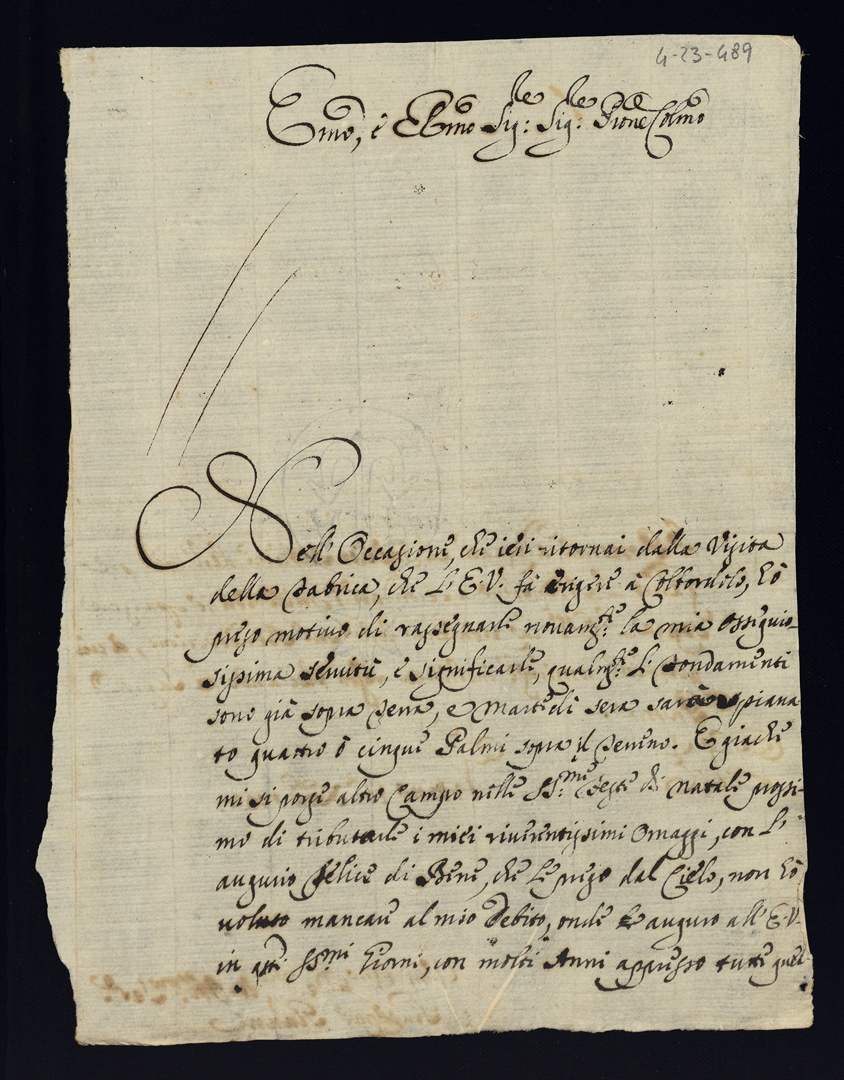 4-23-489
Em̃o, è R̃mo Sig:re Sig:re Pñe Col̃mo
Nell Occasione, che ieri ritornai dalla Visita
della Fabrica, che l'E.V. fà erigere à Collordolo, hò
preso motivo di rassegnarle novam:te la mia ossequio-
sissima servitù, è significarle, qualm:te li Fondamenti
sono già sopra Terra, e Martedì sera sarà spiana
to quattro ò cinque Palmi sopra il Terreno. E giache
mi si porge altro Campo nelle SS:me Feste di Natale prossi-
me di tributarle i miei riverentissimi Omaggi, con l'
augurio felice di Bene, che le prego dal Cielo, non hò
voluto mancare al mio Debito, onde le auguro all'E.V.
in q̃ti SS:mi Giorni, con molti Anni appresso tutte quel-